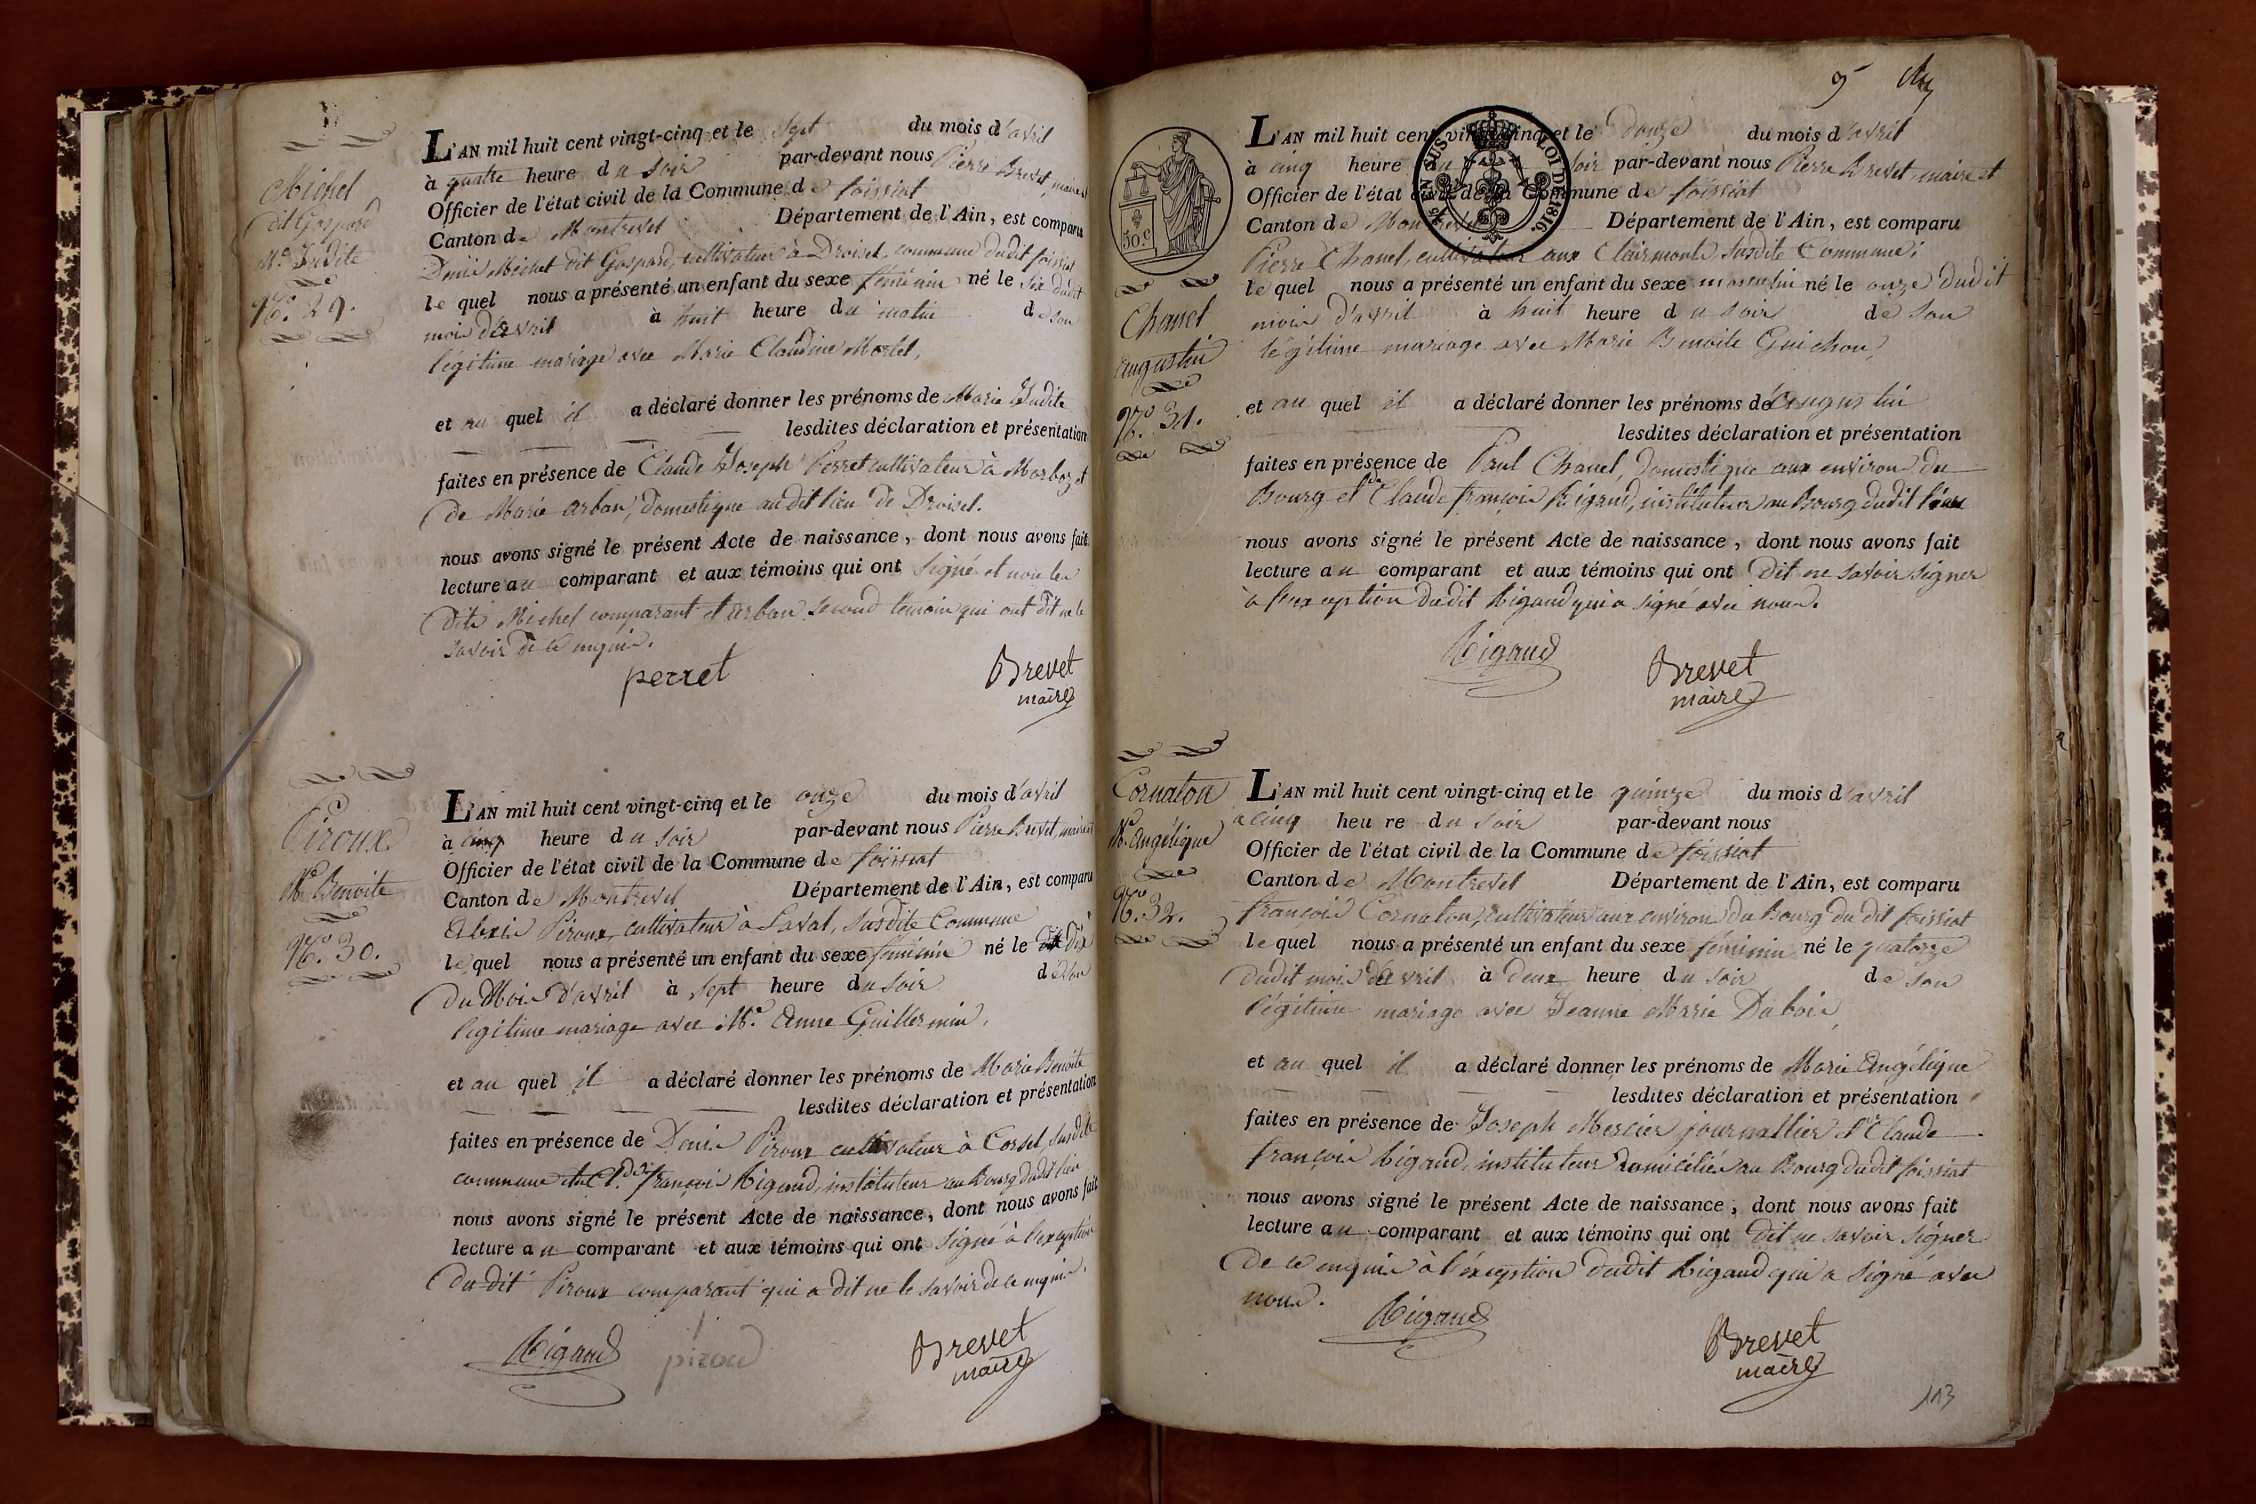 Michel
dit Gaspard
Me. Judite
No. 29.
L'AN mil huit cent vingt-cinq et le sept du mois d'avril
à quatre heure du soir par-devant nous Pierre Brevet, maire et
Officier de l'état civil de la Commune de foissiat
Canton de Montrevel Département de l'Ain, est comparu
Denis Michel dit Gaspard, cultivateur à Droisel, commune dudit foissiat
lequel nous a présenté un enfant du sexe féminin né le six dudit
mois d'avril à huit heure du matin de son
légitime mariage avec Marie Claudine Morlet,
et au quel il a déclaré donner les prénoms de Marie Judite
lesdites déclaration et présentation
faites en présence de Claude Joseph Perret cultivateur à Marboz et
de Marie arban, domestique au dit lieu de Droisel.
nous avons signé le présent Acte de naissance, dont nous avons fait
lecture au comparant et aux témoins qui ont signé et non les
dits Michel comparant et arban second témoin qui ont dit ne le
savoir de ce enquis.
perret
Brevet
maire
Piroux
Me. Benoite
No. 30.
L'AN mil huit cent vingt-cinq et le onze du mois d'avril
à cinq heure du soir par-devant nous Pierre Brevet, maire et
Officier de l'état civil de la Commune de foissiat
Canton de Montrevel Département de l'Ain, est comparu
Alexis Piroux, cultivateur à Laval, susdite Commune
lequel nous a présenté un enfant du sexe féminin né le dix
du Mois d'avril à sept heure du soir de son
légitime mariage avec Me. Anne Guillermin,
et au quel il a déclaré donner les prénoms de Marie Benoite
lesdites déclaration et présentation
faites en présence de Denis Piroux cultivateur à Corsel, susdite
commune et de Cl. françois Rigaud, instituteur au Bourg dudit lieu
nous avons signé le présent Acte de naissance, dont nous avons fait
lecture au comparant et aux témoins qui ont signé à l'exception
du dit Piroux comparant qui a dit ne le savoir de ce enquis.
Rigaud
piroud
Brevet
maire
9
50.c
EN SUS. LOI DE 1816.
Chanel
augustin
No. 31.
L'AN mil huit cent vingt-cinq et le douze du mois d'avril
à cinq heure du soir par-devant nous Pierre Brevet, maire et
Officier de l'état civil de la Commune de foissiat
Canton de Montrevel Département de l'Ain, est comparu
Pierre Chanel, cultivateur aux Clairmonts susdite Commune;
lequel nous a présenté un enfant du sexe masculin né le onze dudit
mois d'avril à huit heure du soir de son
légitime mariage avec Marie Benoite Guichon,
et au quel il a déclaré donner les prénoms d'augustin
lesdites déclaration et présentation
faites en présence de Paul Chanel, domestique aux environs du
Bourg et de Claude françois Rigaud, instituteur au Bourg dudit lieu
nous avons signé le présent Acte de naissance, dont nous avons fait
lecture au comparant et aux témoins qui ont dit ne savoir signer
à l'exception dudit Rigaud qui a signé avec nous.
Rigaud
Brevet
maire
Cornaton
Me. angélique
No. 32.
L'AN mil huit cent vingt-cinq et le quinze du mois d'avril
à cinq heure du soir par-devant nous
Officier de l'état civil de la Commune de foissiat
Canton de Montrevel Département de l'Ain, est comparu
françois Cornaton, cultivateur aux environs du Bourg du dit foissiat
lequel nous a présenté un enfant du sexe féminin né le quatorze
dudit mois d'avril à deux heure du soir de son
légitime mariage avec Jeanne Marie Dubois,
et au quel il a déclaré donner les prénoms de Marie Angélique
lesdites déclaration et présentation
faites en présence de Joseph Mercier journallier et Claude
françois Rigaud, instituteur domiciliés au Bourg dudit foissiat
nous avons signé le présent Acte de naissance, dont nous avons fait
lecture au comparant et aux témoins qui ont dit ne savoir signer
de ce enquis à l'éxception dudit Rigaud qui a signé avec
nous.
Rigaud
Brevet
maire
113